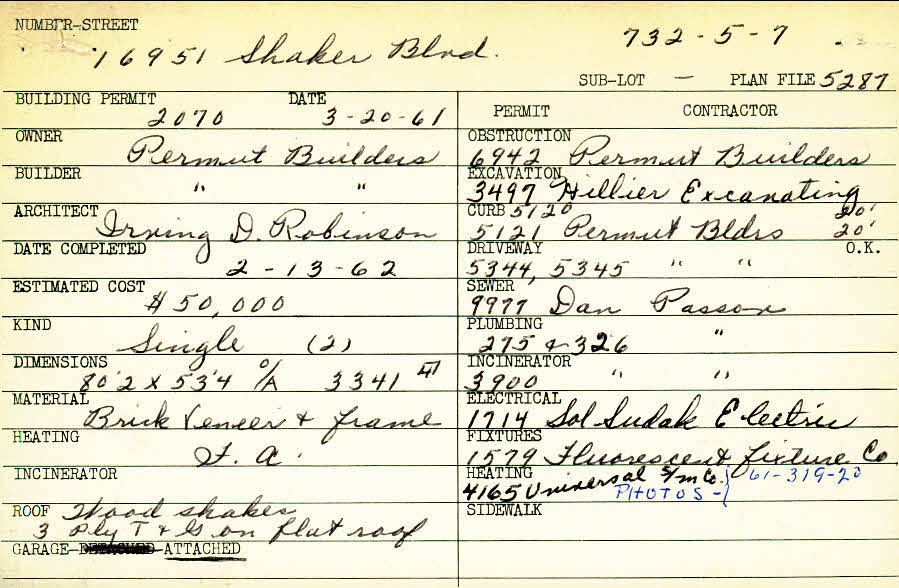 NUMBER-STREET
16951 Shaker Blvd. 732-5-7
SUB-LOT - PLAN FILE 5287
BUILDING PERMIT DATE
2070 3-20-61
OWNER
Permut Builders
BUILDER
" "
ARCHITECT
Irving D. Robinson
DATE COMPLETED
2-13-62
ESTIMATED COST
$50,000
KIND
Single (2)
DIMENSIONS
80'2 x 53'4 O/A 3341
MATERIAL
Brick Veneer & frame
HEATING
F. A.
INCINERATOR
ROOF Wood shakes
3 Ply T & G on flat roof
GARAGE-DETACHED-ATTACHED
PERMIT CONTRACTOR
OBSTRUCTION
6942 Permut Builders
EXCAVATION
3497 Hillier Excavating
CURB 5120 20'
5121 Permut Bldrs 20'
DRIVEWAY O.K.
5344, 5345 " "
SEWER
9977 Dan Passov
PLUMBING
275 & 326 "
INCINERATOR
3900 " "
ELECTRICAL
1714 Sol Sudak Electric
FIXTURES
1579 Fluorescent fixture Co
HEATING
4165 Universal S/m Co. 61-319-20
PHOTOS -
SIDEWALK